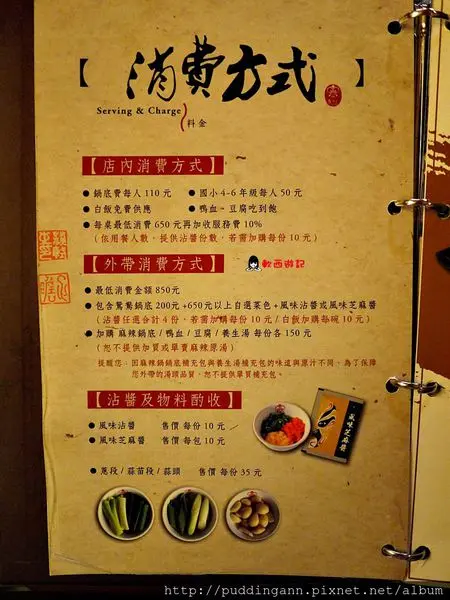 【消費方式】
Serving & Charge
料金
【店內消費方式】
● 鍋底費每人 110 元 ● 國小4-6年級每人 50元
● 白飯免費供應 ● 鴨血、豆腐吃到飽
● 每桌最低消費 650 元再加收服務費 10%
(依用餐人數，提供沾醬份數，若需加購每份 10元)
【外帶消費方式】
軟西遊記
● 最低消費金額850元
● 包含鴛鴦鍋底 200元 +650元以上自選菜色 +風味沾醬或風味芝麻醬
(沾醬任選合計 4份，若需加購每份 10元 / 白飯加購每碗 10元)
● 加購 麻辣鍋底 / 鴨血 / 豆腐 / 養生湯 每份各 150元
(恕不提供加買或單賣麻辣原湯)
提醒您：因麻辣鍋鍋底補充包與養生湯補充包的味道與原汁不同，為了保障
您外帶的湯頭品質，恕不提供單買補充包。
【沾醬及物料酌收】
● 風味沾醬 售價 每份 10元
● 風味芝麻醬 售價 每包 10元
風味芝麻醬
● 蔥段 / 蒜苗段 / 蒜頭 售價 每份 35元
http://puddingann.pixnet.net/album